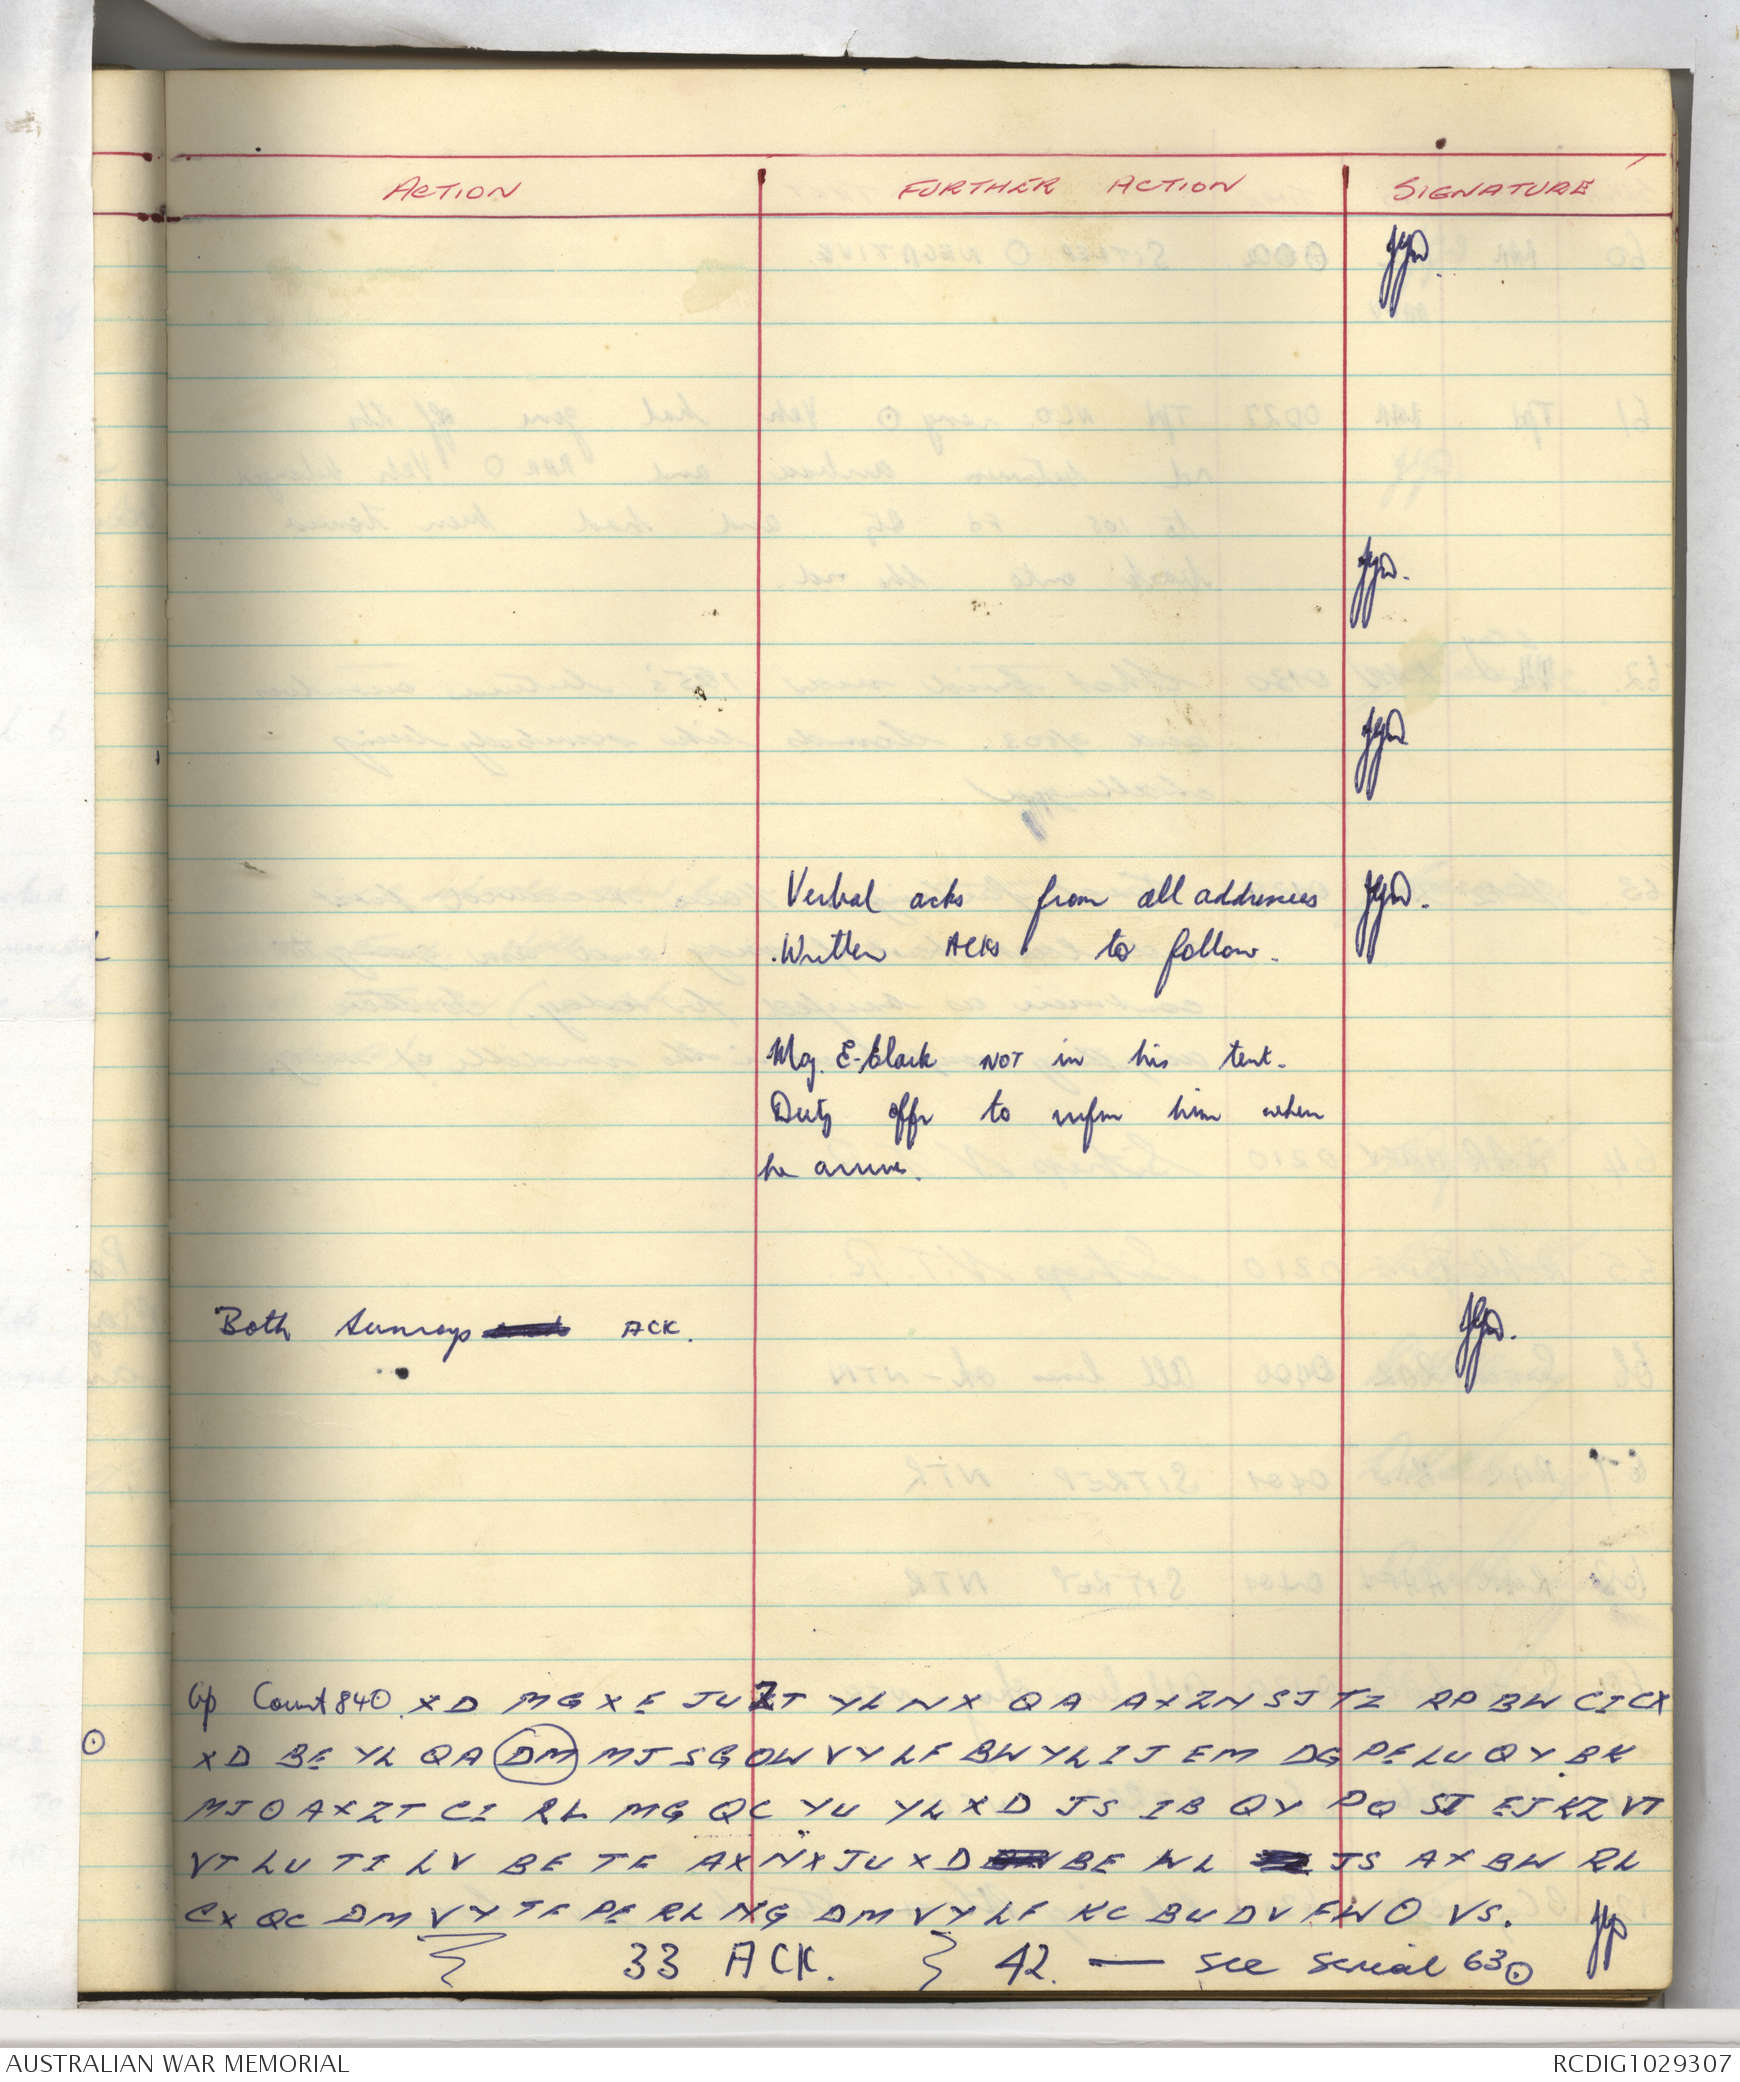 ACTION FURTHER ACTION SIGNATURE
Verbal acks from all addresses
Written ACKs to follow.
Maj. E-Clark NOT in his tent.
Duty offr to infm him when
he arrives.
Both Sunrays ACK.
Gp Count 840. XD MG XE JU ZT YL NX QA AX ZN SJ TZ RP BW CI CX
XD BE YL QA DM MJ SG OW VY LF BW YL IJ EM DG PE LU QY BK
MJ O AX ZT CI RL MG QC YU YL XD JS IB QY PQ SI EJ KZ VT
VT LU TI LV BE TF AX NX JU XD BE WL JS AX BW RL
CX QC DM VY TF PE RL NG DM VY LF KC BU DV FW O VS.
33 ACK. 42. — See Serial 63
AUSTRALIAN WAR MEMORIAL RCDIG1029307